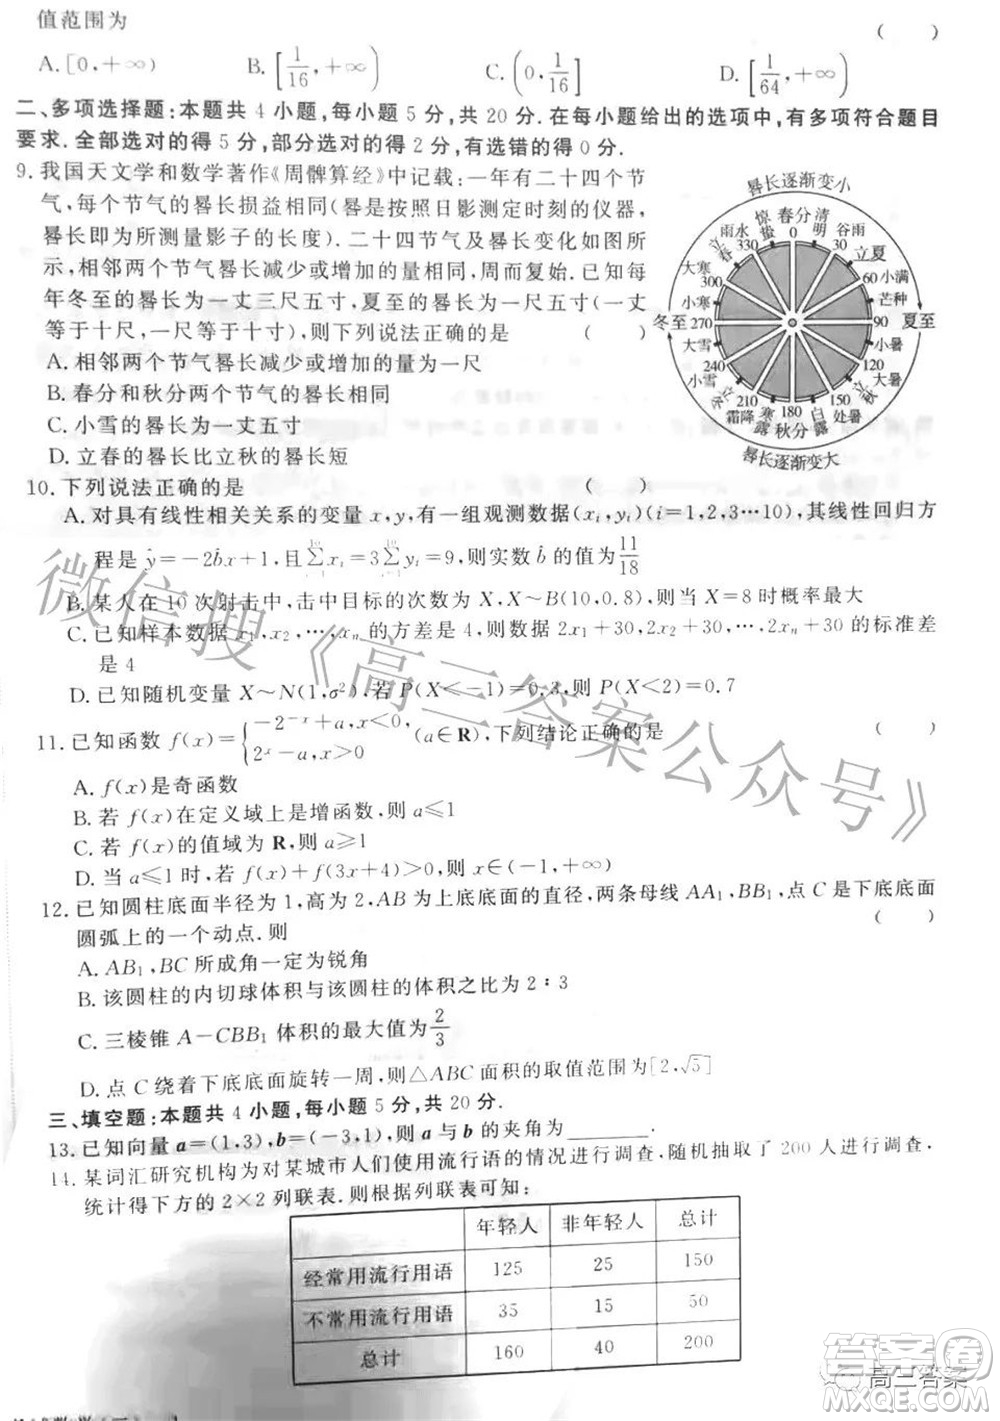 值范围为 ( )
A. [0,+∞) B. [1/16,+∞) C. (0,1/16] D. [1/64,+∞)
二、多项选择题:本题共 4 小题,每小题 5 分,共 20 分.在每小题给出的选项中,有多项符合题目
要求.全部选对的得 5 分,部分选对的得 2 分,有选错的得 0 分.
9. 我国天文学和数学著作《周髀算经》中记载:一年有二十四个节
气,每个节气的晷长损益相同(晷是按照日影测定时刻的仪器,
晷长即为所测量影子的长度).二十四节气及晷长变化如图所
示,相邻两个节气晷长的变化量相同,周而复始.已知每
年冬至的晷长为一丈三尺五寸,夏至的晷长为一尺五寸(一丈
等于十尺,一尺等于十寸),则下列说法正确的是 ( )
A. 相邻两个节气晷长减少或增加的量为一尺
B. 春分和秋分两个节气的晷长相同
C. 小雪的晷长为一丈五寸
D. 立春的晷长比立秋的晷长短
晷长逐渐变小
惊蛰 春分 清明
雨水 谷雨
立春 330 0 30 立夏
大寒 300 60 小满
小寒 芒种
冬至 270 90 夏至
大雪 小暑
小雪 240 120 大暑
立冬 210 180 150 立秋
霜降 寒露 秋分 白露 处暑
晷长逐渐变大
10. 下列说法正确的是 ( )
A. 对具有线性相关关系的变量 x,y,有一组观测数据(xᵢ,yᵢ)(i=1,2,3…10),其线性回归方
程是 ŷ=-2b̂x+1,且∑xᵢ=3∑yᵢ=9,则实数 b̂ 的值为11/18
B. 某人在 10 次射击中,击中目标的次数为 X,X~B(10,0.8),则当 X=8 时概率最大
C. 已知样本数据 x₁,x₂,…,xₙ 的方差是 4,则数据 2x₁+30,2x₂+30,…2xₙ+30 的标准差
是 4
D. 已知随机变量 X~N(1,σ²),若 P(X<-1)=0.3,则 P(X<2)=0.7
11. 已知函数 f(x)={-2⁻ˣ+a,x<0, 2ˣ-a,x>0 (a∈R),下列结论正确的是 ( )
A. f(x)是奇函数
B. 若 f(x)在定义域上是增函数,则 a≤1
C. 若 f(x)的值域为 R,则 a≥1
D. 当 a≤1 时,若 f(x)+f(3x+4)>0,则 x∈(-1,+∞)
12. 已知圆柱底面半径为 1,高为 2,AB 为上底底面的直径,两条母线 AA₁,BB₁,点 C 是下底底面
圆弧上的一个动点.则 ( )
A. AB₁,BC 所成角一定为锐角
B. 该圆柱的内切球体积与该圆柱体积之比为 2∶3
C. 三棱锥 A-CBB₁ 体积的最大值为2/3
D. 点 C 绕着下底底面旋转一周,则△ABC 面积的取值范围为[2,√5]
三、填空题:本题共 4 小题,每小题 5 分,共 20 分.
13. 已知向量 a=(1,3),b=(-3,1),则 a 与 b 的夹角为______.
14. 某词汇研究机构为对某城市人们使用流行语的情况进行调查,随机抽取了 200 人进行调查,
统计得下方的 2×2 列联表.则根据列联表可知:
年轻人 非年轻人 总计
经常用流行用语 125 25 150
不常用流行用语 35 15 50
总计 160 40 200
微信搜《高三答案公众号》
答案圈
高三答案